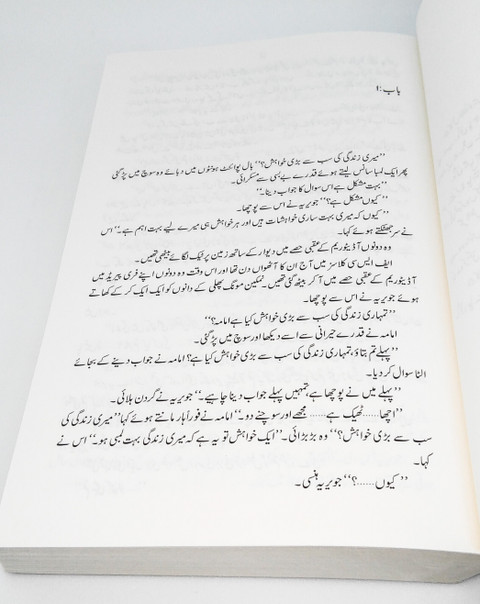 باب:۱
”میری زندگی کی سب سے بڑی خواہش؟“ بال پوائنٹ ہونٹوں میں دبائے وہ سوچ میں پڑ گئی
پھر ایک لمبا سانس لیتے ہوئے قدرے بے بسی سے مسکرائی۔
”بہت مشکل ہے اس سوال کا جواب دینا۔“
”کیوں مشکل ہے؟“ جویریہ نے اس سے پوچھا۔
”کیوں کہ میری بہت ساری خواہشات ہیں اور ہر خواہش ہی میرے لیے بہت اہم ہے۔“ اس
نے سر جھٹکتے ہوئے کہا۔
وہ دونوں آڈیٹوریم کے عقبی حصے میں دیوار کے ساتھ زمین پر ٹیک لگائے بیٹھی تھیں۔
ایف ایس سی کلاسز میں آج ان کا آٹھواں دن تھا اور اس وقت وہ دونوں اپنے فری پیریڈ میں
آڈیٹوریم کے عقبی حصے میں آ کر بیٹھ گئی تھیں۔ نمکین مونگ پھلی کے دانوں کو ایک ایک کر کے کھاتے
ہوئے جویریہ نے اس سے پوچھا۔
”تمہاری زندگی کی سب سے بڑی خواہش کیا ہے امامہ؟“
امامہ نے قدرے حیرانی سے اسے دیکھا اور سوچ میں پڑ گئی۔
”پہلے تم بتاؤ، تمہاری زندگی کی سب سے بڑی خواہش کیا ہے؟“ امامہ نے جواب دینے کے بجائے
الٹا سوال کر دیا۔
”پہلے میں نے پوچھا ہے، تمہیں پہلے جواب دینا چاہیے۔“ جویریہ نے گردن ہلائی۔
”اچھا...... ٹھیک ہے...... مجھے اور سوچنے دو۔“ امامہ نے فوراً ہار مانتے ہوئے کہا ”میری زندگی کی
سب سے بڑی خواہش؟“ وہ بڑبڑائی۔ ”ایک خواہش تو یہ ہے کہ میری زندگی بہت لمبی ہو۔“ اس نے
کہا۔
”کیوں......؟“ جویریہ ہنسی۔